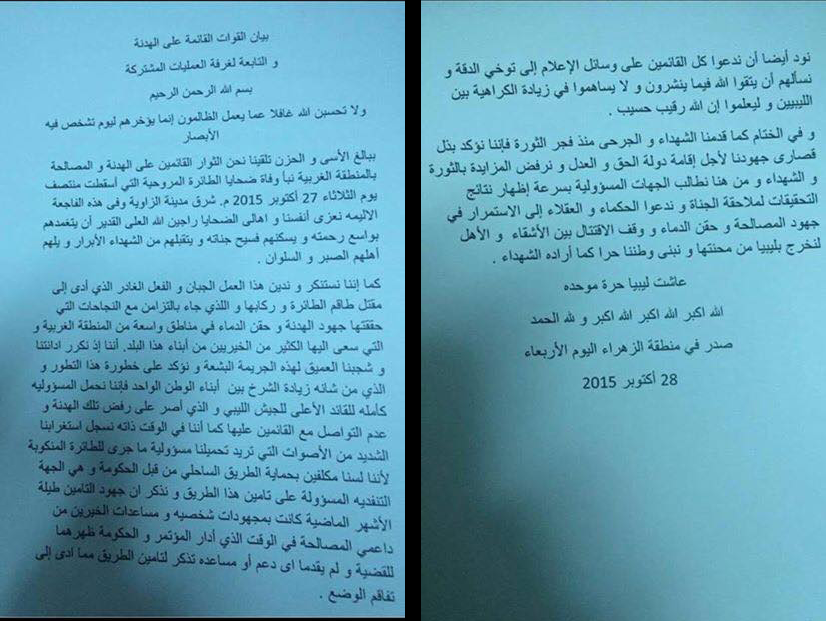 بيان القوات القائمة على الهدنة
و التابعة لغرفة العمليات المشتركة
بسم الله الرحمن الرحيم
ولا تحسبن الله غافلا عما يعمل الظالمون إنما يؤخرهم ليوم تشخص فيه
الأبصار
ببالغ الأسى و الحزن تلقينا نحن الثوار القائمين على الهدنة و المصالحة
بالمنطقة الغربية نبأ وفاة ضحايا الطائرة المروحية التي أسقطت منتصف
يوم الثلاثاء 27 أكتوبر 2015 م. شرق مدينة الزاوية وفى هذه الفاجعة
الاليمه نعزى أنفسنا و اهالى الضحايا راجين الله العلى القدير أن يتغمدهم
بواسع رحمته و يسكنهم فسيح جناته و يتقبلهم من الشهداء الأبرار و يلهم
أهلهم الصبر و السلوان .
كما إننا نستنكر و ندين هذا العمل الجبان و الفعل الغادر الذي أدى إلى
مقتل طاقم الطائرة و ركابها و اللذي جاء بالتزامن مع النجاحات التي
حققتها جهود الهدنة و حقن الدماء في مناطق واسعة من المنطقة الغربية و
التي سعى اليها الكثير من الخيريين من أبناء هذا البلد. أننا إذ نكرر ادانتنا
و شجبنا العميق لهذه الجريمة البشعة و نؤكد على خطورة هذا التطور و
الذي من شانه زيادة الشرخ بين أبناء الوطن الواحد فإننا نحمل المسؤوليه
كأمله للقائد الأعلى للجيش الليبي و الذي أصر على رفض تلك الهدنة و
عدم التواصل مع القائمين عليها كما أننا في الوقت ذاته نسجل استغرابنا
الشديد من الأصوات التي تريد تحميلنا مسؤولية ما جرى للطائرة المنكوبة
لأننا لسنا مكلفين بحماية الطريق الساحلي من قبل الحكومة و هي الجهة
التنفديه المسؤولة على تامين هذا الطريق و نذكر ان جهود التامين طيلة
الأشهر الماضية كانت بمجهودات شخصيه و مساعدات الخيرين من
داعمي المصالحة في الوقت الذي أدار المؤتمر و الحكومة ظهرهما
للقضية و لم يقدما اى دعم أو مساعده تذكر لتامين الطريق مما ادى إلى
تفاقم الوضع .
نود أيضا أن ندعوا كل القائمين على وسائل الإعلام إلى توخي الدقة و
نسألهم أن يتقوا الله فيما ينشرون و لا يساهموا في زيادة الكراهية بين
الليبيين و ليعلموا إن الله رقيب حسيب .
و في الختام كما قدمنا الشهداء و الجرحى منذ فجر الثورة فإننا نؤكد بذل
قصارى جهودنا لأجل إقامة دولة الحق و العدل و نرفض المزايدة بالثورة
و الشهداء و من هنا نطالب الجهات المسؤولية بسرعة إظهار نتائج
التحقيقات لملاحقة الجناة و ندعوا الحكماء و العقلاء إلى الاستمرار في
جهود المصالحة و حقن الدماء و وقف الاقتتال بين الأشقاء و الأهل
لنخرج بليبيا من محنتها و نبنى وطننا حرا كما أراده الشهداء .
عاشت ليبيا حرة موحده
الله اكبر الله اكبر الله اكبر و لله الحمد
صدر في منطقة الزهراء اليوم الأربعاء
28 أكتوبر 2015